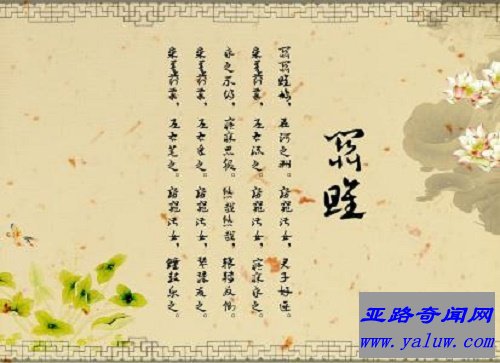 關雎
關關雎鳩，在河之洲。窈窕淑女，君子好逑。
參差荇菜，左右流之。窈窕淑女，寤寐求之。
求之不得，寤寐思服。悠哉悠哉，輾轉反側。
參差荇菜，左右采之。窈窕淑女，琴瑟友之。
參差荇菜，左右芼之。窈窕淑女，鐘鼓樂之。
亚路奇闻网
www.yaluw.com